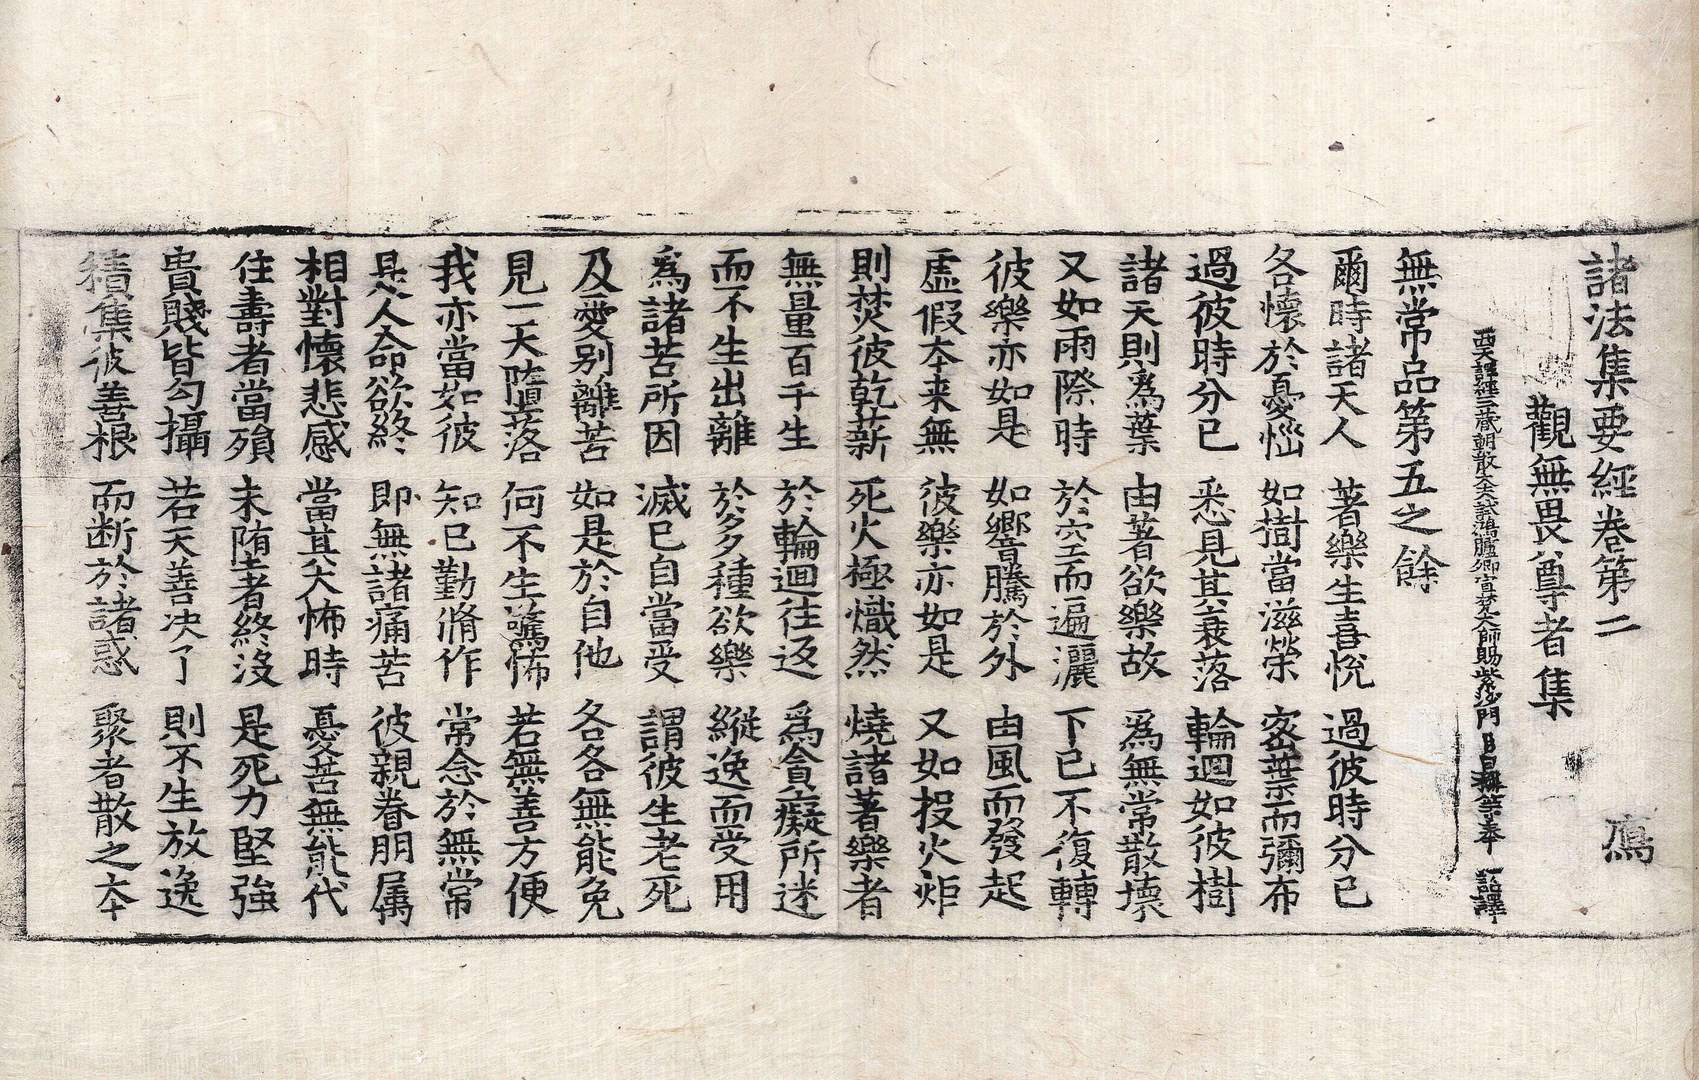 諸法集要經卷第二 鴈
觀無畏尊者集
西天譯經三藏朝散大夫試鴻臚卿宣梵大師賜紫沙門臣日稱等奉 詔譯
無常品第五之餘
爾時諸天人 著樂生喜悅 過彼時分已
各懷於憂惱 如樹當滋榮 密葉而彌布
過彼時分已 悉見其衰落 輪迴如彼樹
諸天則爲葉 由著欲樂故 爲無常散壞
又如雨際時 於空而遍灑 下已不復轉
彼樂亦如是 如響騰於外 由風而發起
虛假本来無 彼樂亦如是 又如投火炬
則焚彼乾薪 死火極熾然 燒諸著樂者
無量百千生 於輪迴往返 爲貪癡所迷
而不生出離 於多種欲樂 縱逸而受用
爲諸苦所因 滅已自當受 謂彼生老死
及愛别離苦 如是於自他 各各無能免
見一天墮落 何不生驚怖 若無善方便
我亦當如彼 知已勤脩作 常念於無常
是人命欲終 即無諸痛苦 彼親眷朋属
相對懷悲感 當其大怖時 憂苦無能代
住壽者當殞 未墮者終沒 是死力堅強
貴賤皆勾攝 若天善决了 則不生放逸
積集彼善根 而断於諸惑 聚者散之本